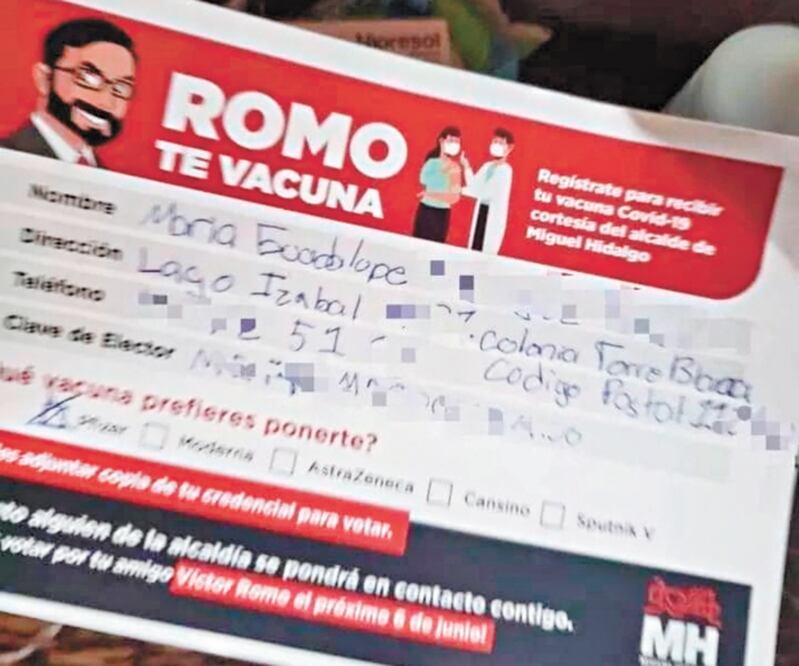 Hipresol
ROMO
TE VACUNA
Regístrate para recibir
tu vacuna Covid-19
cortesía del alcalde de
Miguel Hidalgo
Nombre María Guadalupe
Dirección Lago Izabal
Colonia Torre Blanca
Teléfono 51
Codigo Postal
Clave de Elector
qué vacuna prefieres ponerte?
Pfizer Moderna AstraZeneca Cansino Sputnik V
adjuntar copia de tu credencial para votar.
alguien de la alcaldía se pondrá en contacto contigo.
votar por tu amigo Víctor Romo el próximo 6 de junio!
MH